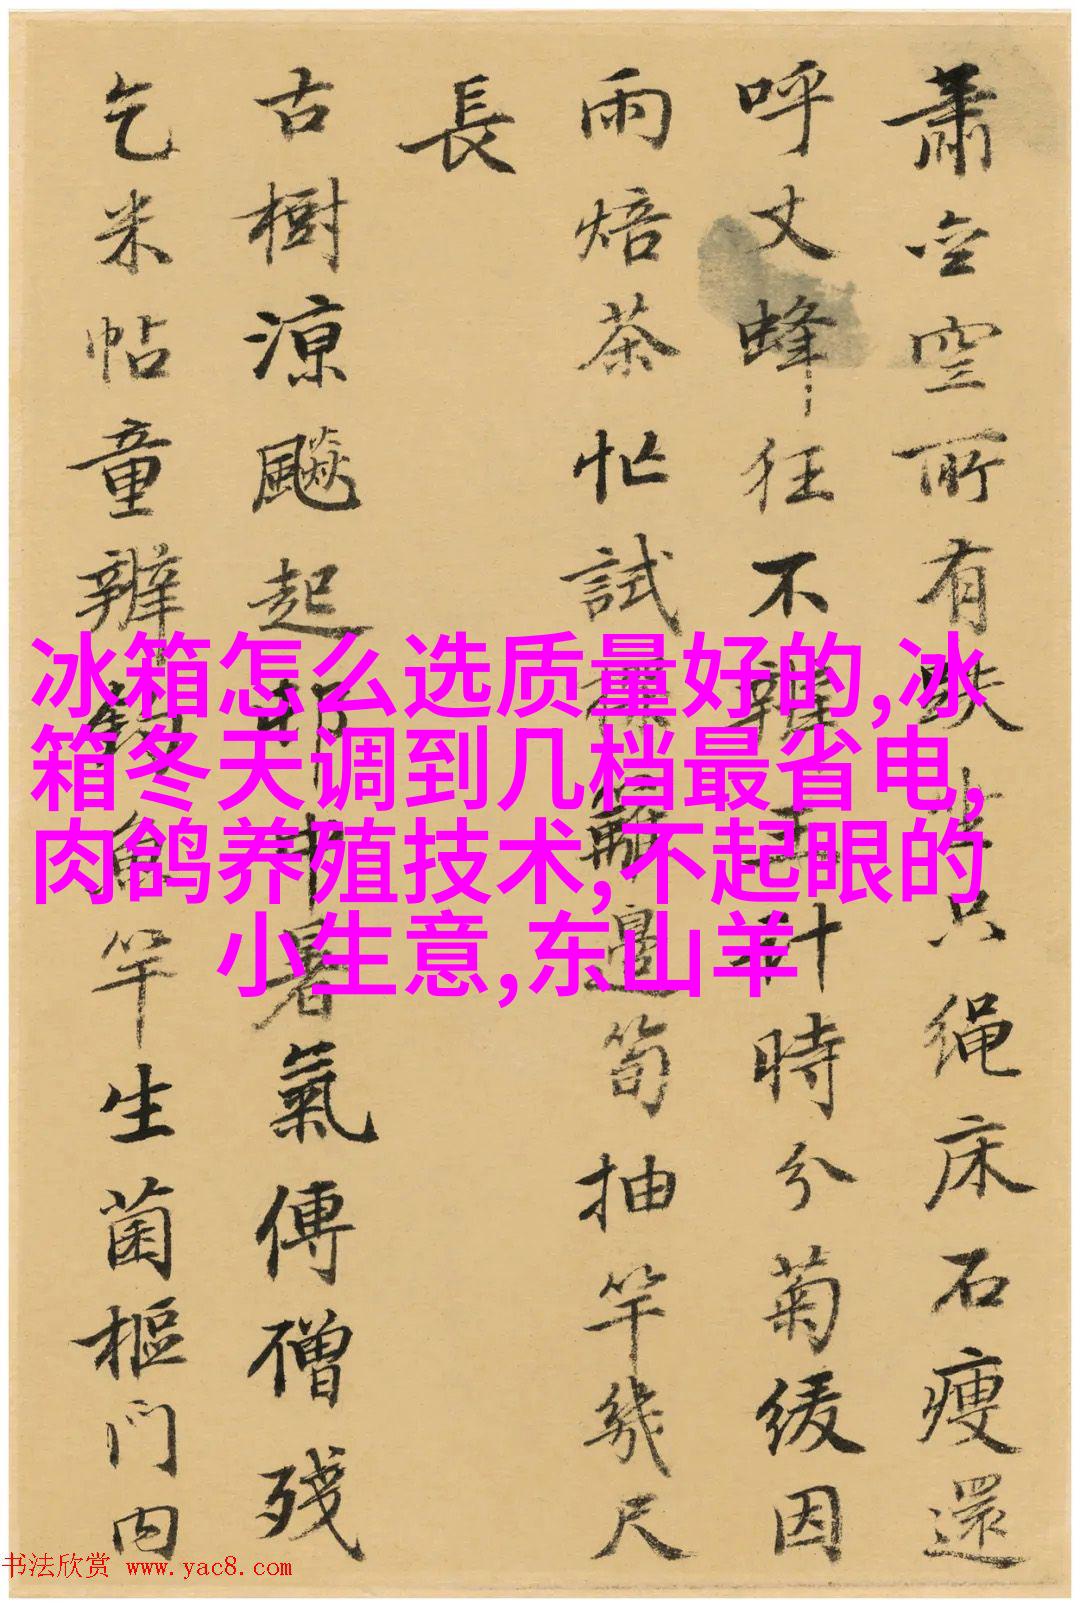 蕭空所有趺坐只繩床石瘦還
呼丈蜂狂不離王計時分菊緩因
雨焙茶忙試邊筍抽竿幾尺
長
古樹涼飈起却中暑氣傳僧殘
乞米帖童辨釣魚竿生菌樞門内
冰箱怎么选质量好的,冰
箱冬天调到几档最省电,
肉鸽养殖技术,不起眼的
小生意,东山羊
书法欣赏 www.yac8.com